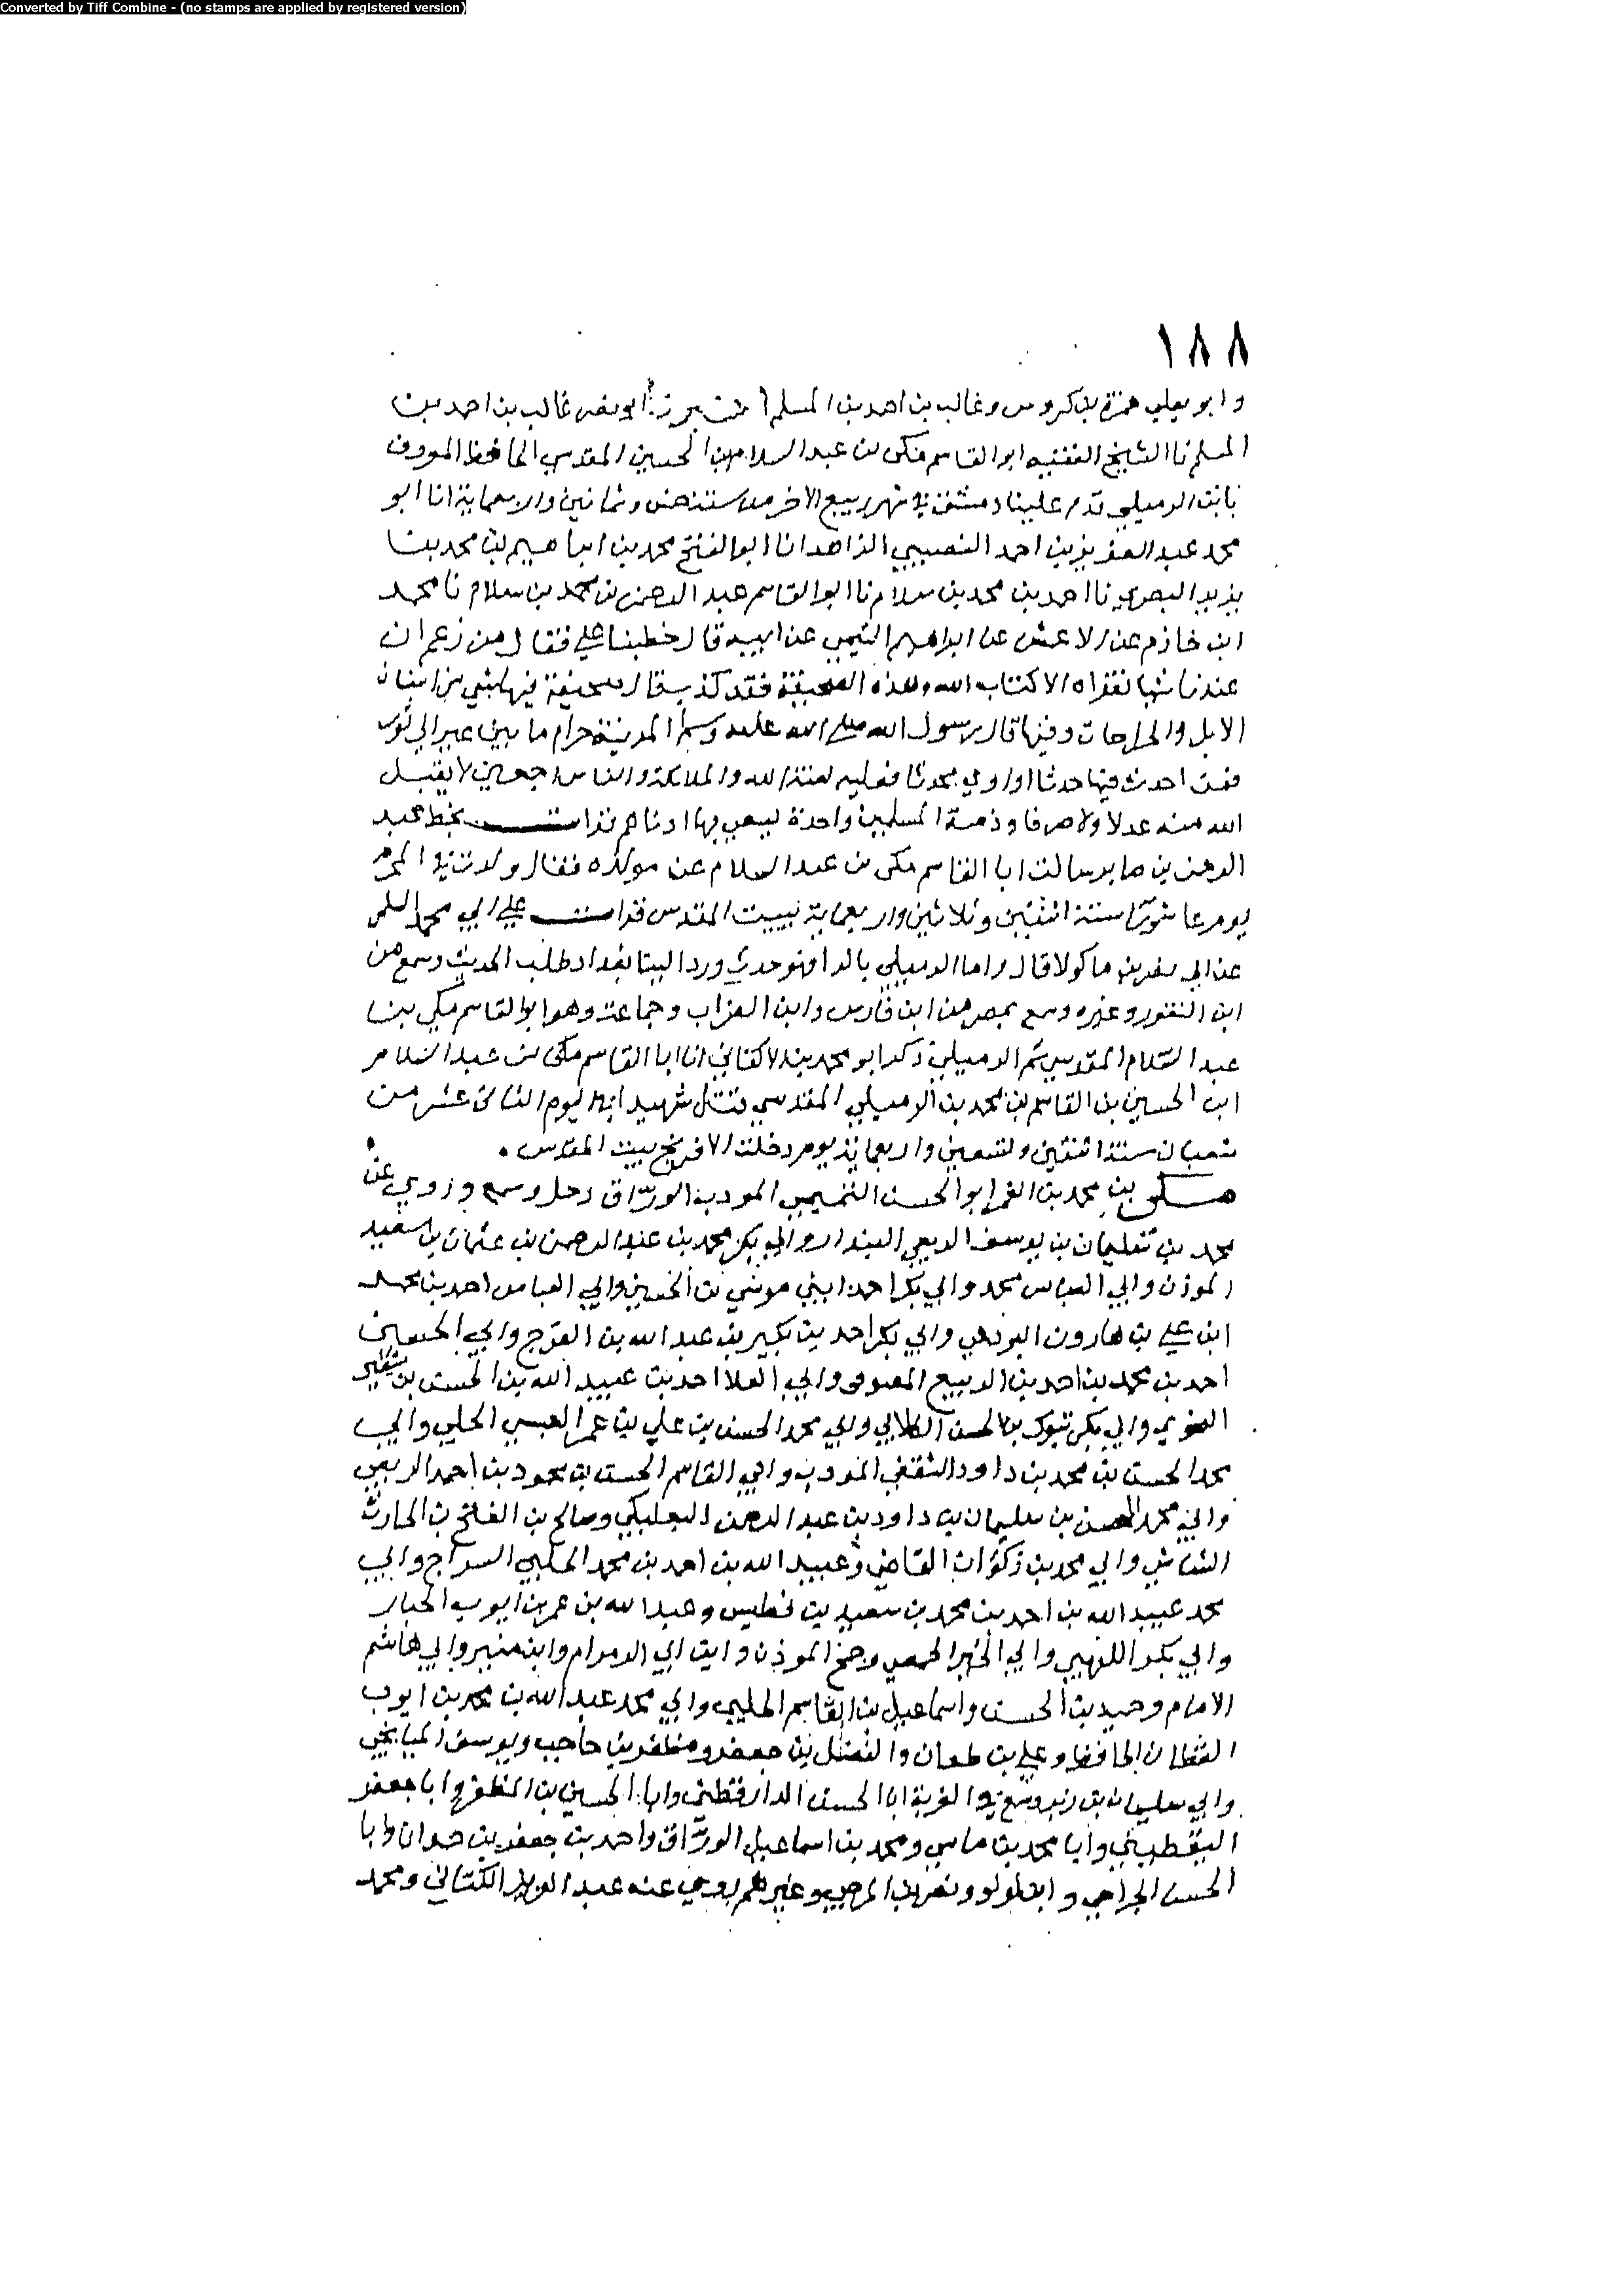 Converted by Tiff Combine - (no stamps are applied by registered version)
١٨٨
وابو يعلي حمزة بن كروس وغالب بن احمد بن المسلم ابو نصر غالب بن احمد بن
المسلم نا الشيخ الفقيه ابو القاسم مكي بن عبد السلام بن الحسين المقدسي الحافظ المعروف
بابن الرميلي قدم علينا دمشق في شهر ربيع الاخر من سنة خمس وثمانين واربعماية انا ابو
محمد عبد العزيز بن احمد النصيبي الزاهد انا ابو الفتح محمد بن ابراهيم بن محمد بن
يزيد البصري نا احمد بن محمد بن سلام نا ابو القاسم عبد الرحمن بن محمد بن سلام نا محمد
ابن خازم عن الاعمش عن ابراهيم التيمي عن ابيه قال خطبنا علي فقال من زعم ان
عندنا شيا نقراه الا كتاب الله وهذه الصحيفة فقد كذب قال صحيفة فيها شي من اسنان
الابل والجراحات وفيها قال رسول الله صلى الله عليه وسلم المدينة حرام ما بين عير الى ثور
فمن احدث فيها حدثا او اوى محدثا فعليه لعنة الله والملائكة والناس اجمعين لا يقبل
الله منه عدلا ولا صرفا وذمة المسلمين واحدة يسعى بها ادناهم قرات بخط عبد
الرحمن بن صابر سالت ابا القاسم مكي بن عبد السلام عن مولده فقال ولدت في المحرم
يوم عاشورا سنة اثنتين وثلاثين واربعماية ببيت المقدس قرات علي ابي محمد السلمي
عن ابي نصر بن ماكولا قال واما الرميلي بالراء فهو حدث ورد الينا بغداد طلب الحديث وسمع من
ابن النقور وغيره وسمع بمصر من ابن فارس وابن العراب وجماعة وهو ابو القاسم مكي بن
عبد السلام المقدسي ثم الرميلي ذكر ابو محمد بن الاكفاني ان ابا القاسم مكي بن عبد السلام
ابن الحسين بن القاسم بن محمد بن الرميلي المقدسي قتل شهيدا في اليوم الثاني عشر من
شعبان سنة اثنتين وتسعين واربعماية يوم دخلت الافرنج بيت المقدس .
مكي بن محمد بن الغمر ابو الحسن التميمي المودب الوراق رحل وسمع وروى عن
محمد بن سليمان بن يوسف الربعي البندار وابي بكر محمد بن عبد الرحمن بن عثمان بن سعيد
الموذن وابي العباس محمد وابي بكر احمد ابني موسى بن الحسين وابي العباس احمد بن محمد
ابن علي بن هارون البردعي وابي بكر احمد بن بكير بن عبد الله بن الفرج وابي الحسين
احمد بن محمد بن احمد بن الربيع وابي العلا احمد بن عبيد الله بن الحسن بن شقير
النحوي وابي بكر تبوك بن الحسن الكلابي وابي محمد الحسن بن علي بن عمر العبسي الحلبي وابي
محمد الحسن بن محمد بن داود الثقفي المودب وابي القاسم الحسن بن محمود بن احمد الربعي
وابي محمد الحسن بن سليمان بن داود بن عبد الرحمن البعلبكي وصالح بن الفتح بن الحارث
الشاشي وابي محمد بن ذكوان القاضي وعبيد الله بن احمد بن محمد الحلبي السراج وابي
محمد عبيد الله بن احمد بن محمد بن سعيد بن فطيس وعبد الله بن عمر بن ايوب
وابي بكر وابي الخير الحمصي وجمح الموذن وابن ابي الرمرام وابن منير وابي هاشم
الامام وحميد بن الحسن واسماعيل بن القاسم الحلبي وابي محمد عبد الله بن محمد بن ايوب
القطان الحافظ وعلي بن طعان والفضل بن جعفر ومظفر بن حاجب ويوسف الميانجي
وابي سليمان بن زبر وسمع في الغربة ابا الحسن الدارقطني وابا الحسين بن المظفر وابا جعفر
اليقطيني وابا محمد بن ماسي ومحمد بن اسماعيل الوراق واحمد بن جعفر بن حمدان وابا
الحسن الجراحي وابن لولو وغيرهم روى عنه عبد العزيز الكتاني ومحمد